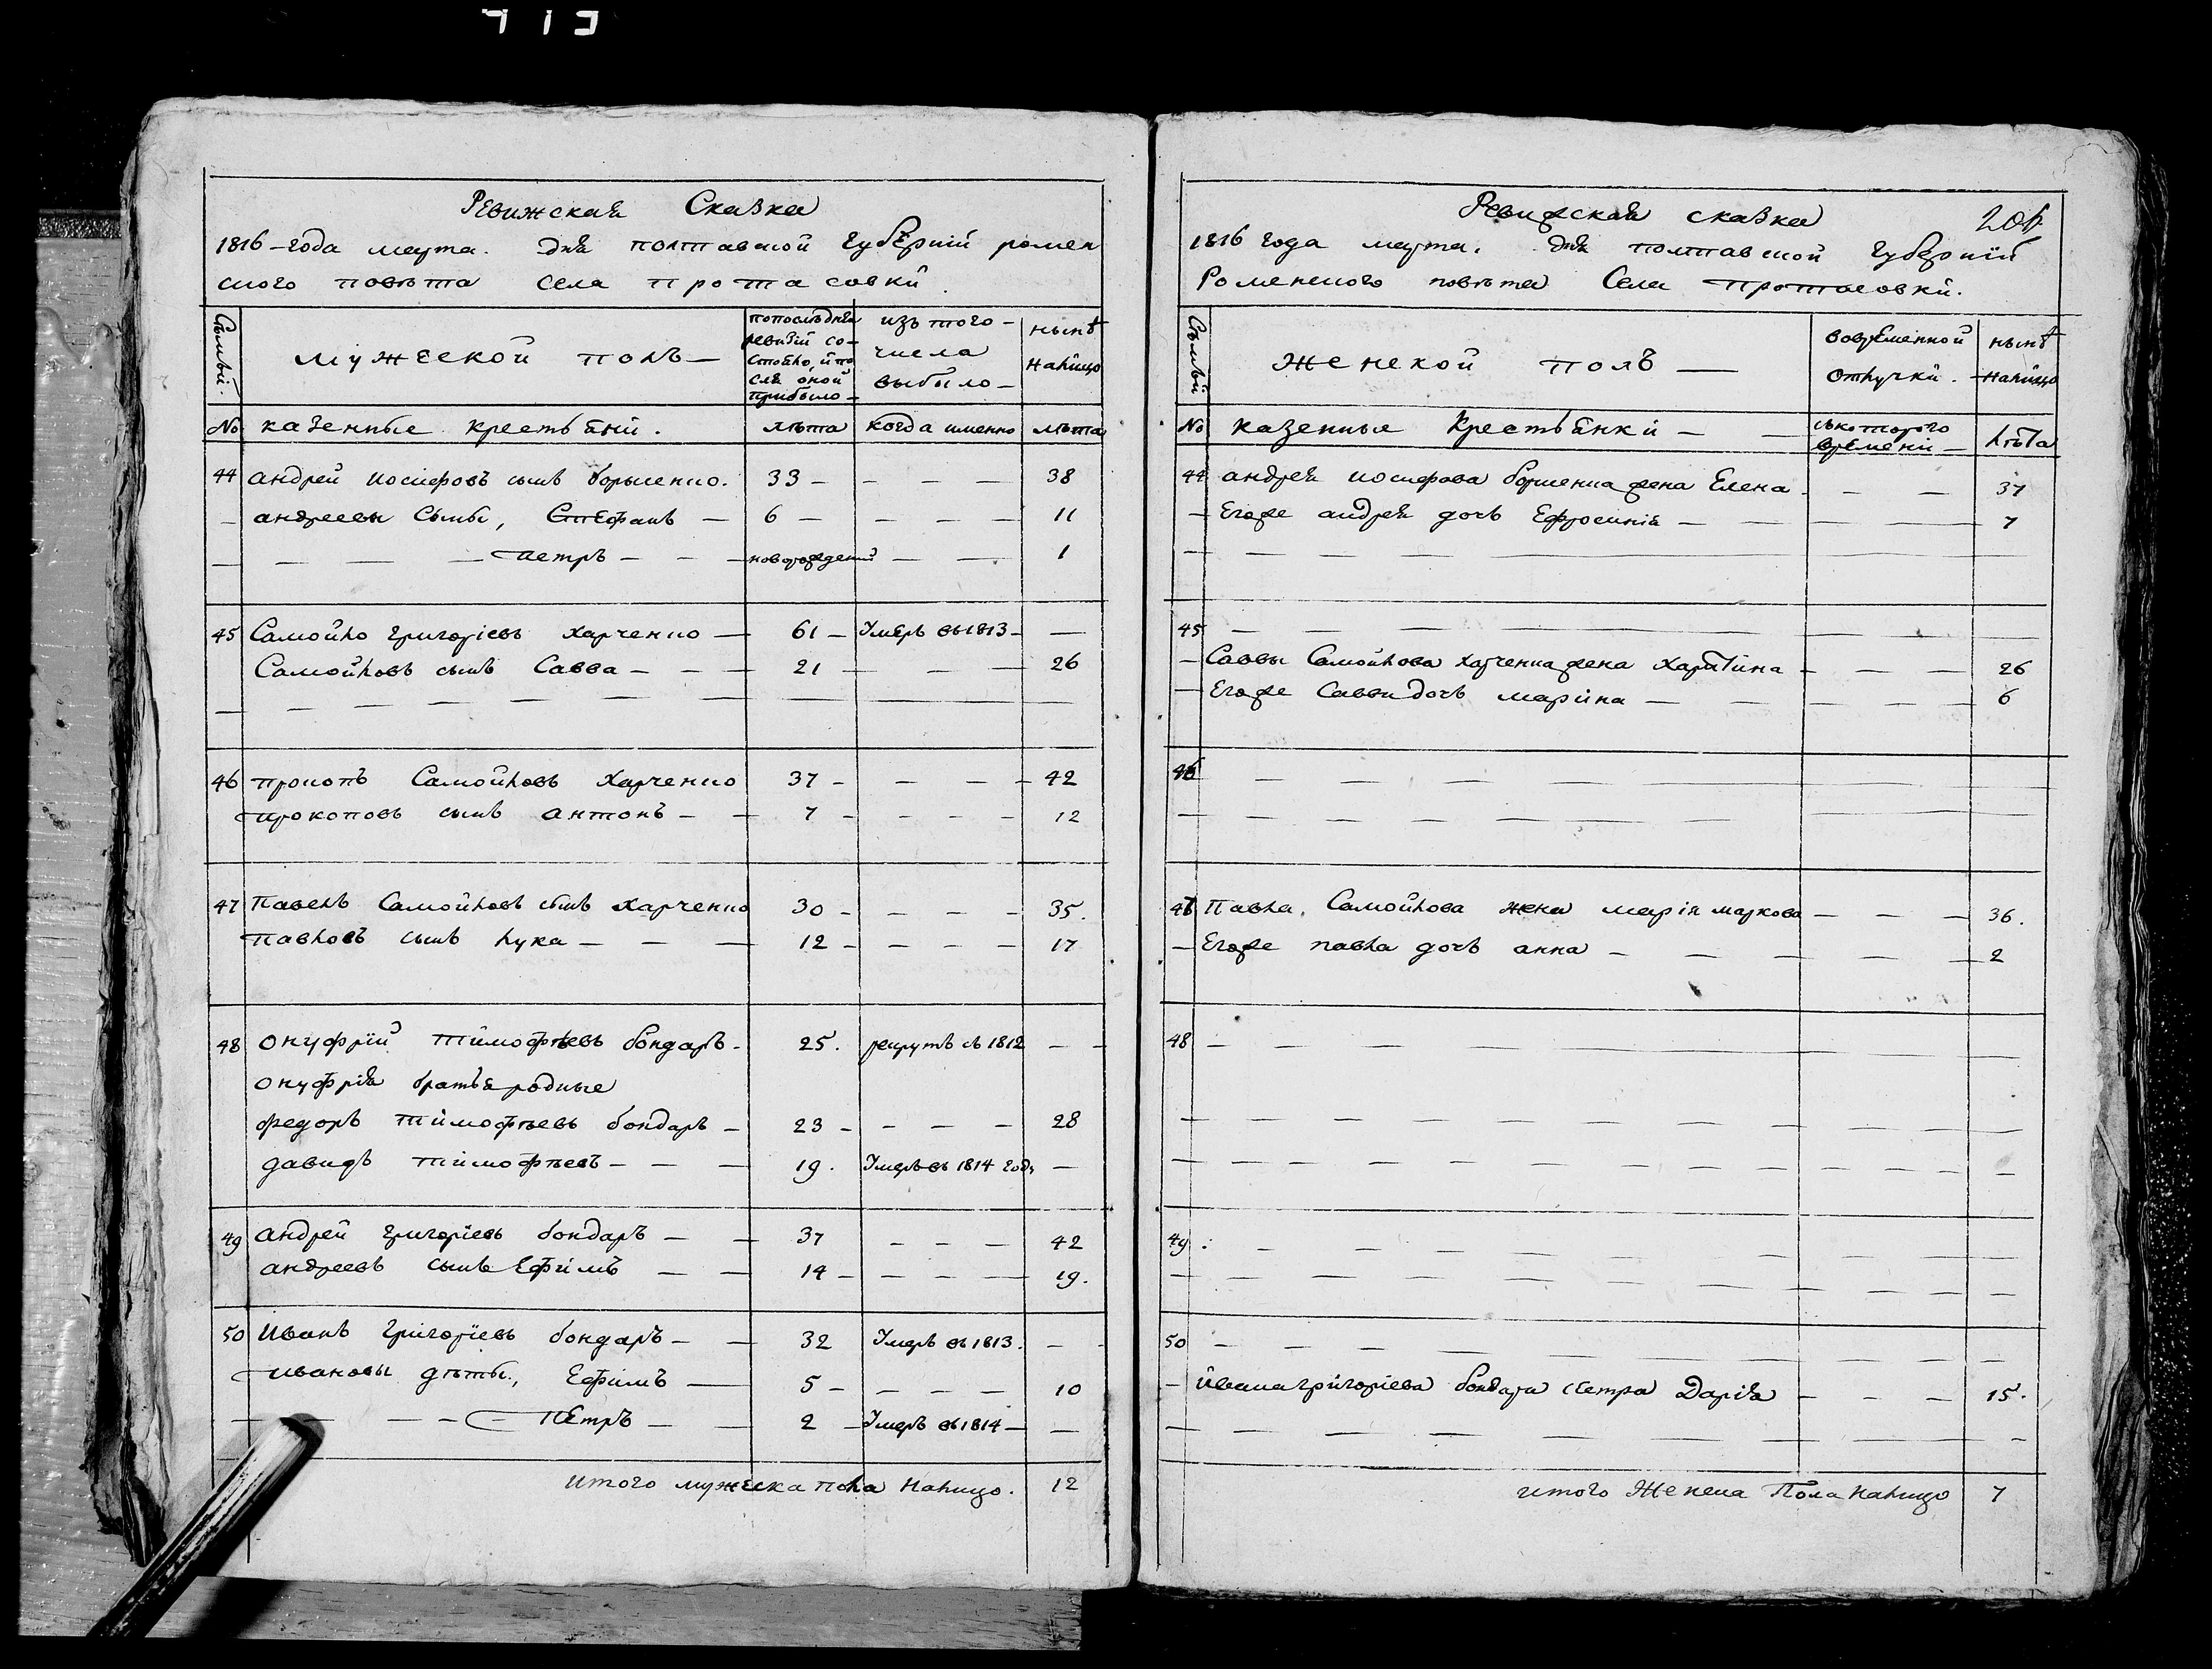 713
Ревижская Сказка
1816-года марта. дня полтавской губерніи ромен
ского повѣта села протасовки.
Сѣмьи.
мужеской полъ—
попослѣдней
ревизіи со-
стояло, и по
сля оной
прибыло—
изъ того-
числа
выбыло—
нынѣ
налицо
№ казенные крестьяни. лѣта когда именно лѣта
44 андрей иосифовъ сынъ борисенко. 33 — — — — 38
— андреевы Сыны, Стефанъ — 6 — — — — 11
— — — — петръ — — — новорожденій — — 1
45 Самойло григоріевъ харченко — 61 — Умеръ въ 1813 — —
Самойловъ сынъ Савва — — — 21 — — — 26
46 прокопъ Самойловъ Харченко 37 — — — — 42
прокоповъ сынъ антонъ — — 7 — — — — 12
47 Павелъ Самойловъ сынъ харченко 30 — — — — 35.
павловъ сынъ лука — — — 12 — — — — 17
48 онуфрій тимофѣевъ бондарь. 25. рекрутъ въ 1812 — —
онуфрія братья родные
федоръ тимофѣевъ бондарь — 23 — — — — 28
давидъ тимофѣевъ — — — 19. Умеръ въ 1814 году —
49 андрей григоріевъ бондарь — — 37 — — — 42
андреевъ сынъ Ефимъ — — 14 — — — — 19.
50 Иванъ григоріевъ бондарь — — 32 Умеръ въ 1813. — —
ивановы дѣты, Ефимъ — 5 — — — — 10
— — — — Петръ — — 2 — Умеръ въ 1814 — —
итого мужеска пола налицо. 12
Ревижская сказка
1816 года марта. дня полтавской губерній
Роменского повѣта Села протасовки.
Сѣмьи
женской полъ —
вовремянной
отлучки.
нынѣ
налицо
№ казенные крестьянки — — съкоторого времени — лѣта
44 андрея иосифова борисенка жена Елена — — — 37
— Егоже андрея дочь Ефросинія — — — — — 7
45 — — — — — — — — —
— Саввы Самойлова харченка жена харитина — — — 26
— Егоже Саввы дочь марина — — — — — 6
46 — — — — — — — — —
47 Павла. Самойлова жена марія маркова — — — 36.
— Егоже павла дочь анна — — — — — 2
48 — — — — — — — — —
49 — — — — — — — — —
50 — — — — — — — — —
— ивана григоріева бондаря сестра Дарія — — — 15.
итого Женска Пола налицо 7